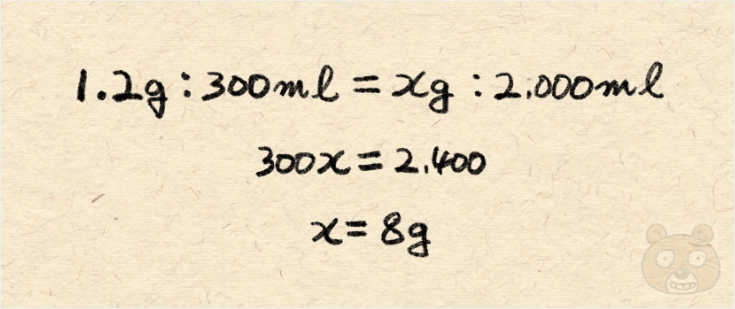 1.2g:300ml=xg:2.000ml
300x=2.400
x=8g